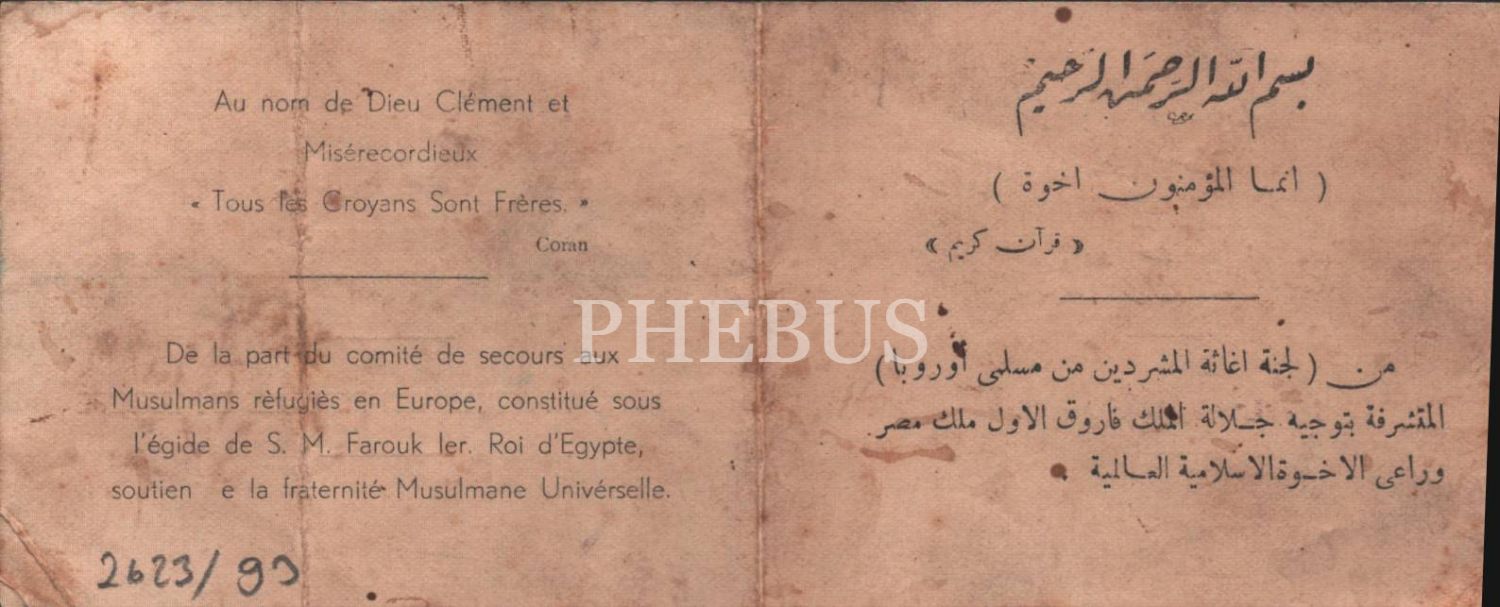 Au nom de Dieu Clément et
Misérecordieux
« Tous les Croyans Sont Frères. »
Coran
De la part du comité de secours aux
Musulmans rèfugiès en Europe, constitué sous
l'égide de S. M. Farouk Ier. Roi d'Egypte,
soutien e la fraternité Musulmane Univérselle.
2623/93
بسم الله الرحمن الرحيم
( انما المؤمنون اخوة )
« قرآن كريم »
من ( لجنة اغاثة المشردين من مسلمى أوروبا )
المتشرفة بتوجيه جلالة الملك فاروق الاول ملك مصر
وراعى الاخوة الاسلامية العالمية .
PHEBUS